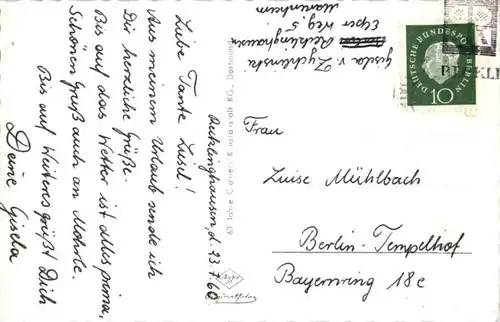 Recklinghausen, d. 23.7.60
Liebe Tante Luise!
Aus meinem Urlaub sende ich
Dir herzliche Grüße.
Bis auf das Wetter ist alles prima,
Schönen Gruß auch an Mohrle.
Bis auf Weiteres grüßt Dich
Deine Gisela
Gisela v. Zychlinski
Recklinghausen
Weg 5
Mannheim
DEUTSCHE BUNDESPOST BERLIN
10
Frau
Luise Mühlbach
Berlin-Tempelhof
Bayernring 18c